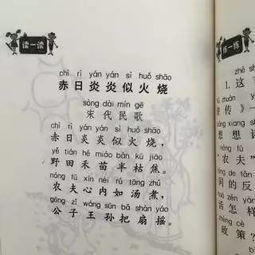 读一读
chì rì yán yán sì huǒ shāo
赤日炎炎似火烧
sòng dài mín gē
宋代民歌
chì rì yán yán sì huǒ shāo
赤日炎炎似火烧，
yě tián hé miáo bàn kū jiāo
野田禾苗半枯焦。
nóng fū xīn nèi rú tāng zhǔ
农夫心内如汤煮，
gōng zǐ wáng sūn bǎ shàn yáo
公子王孙把扇摇。
练一练
1. 这
传》
想想
“农夫”
词的反
话怎样
政策？